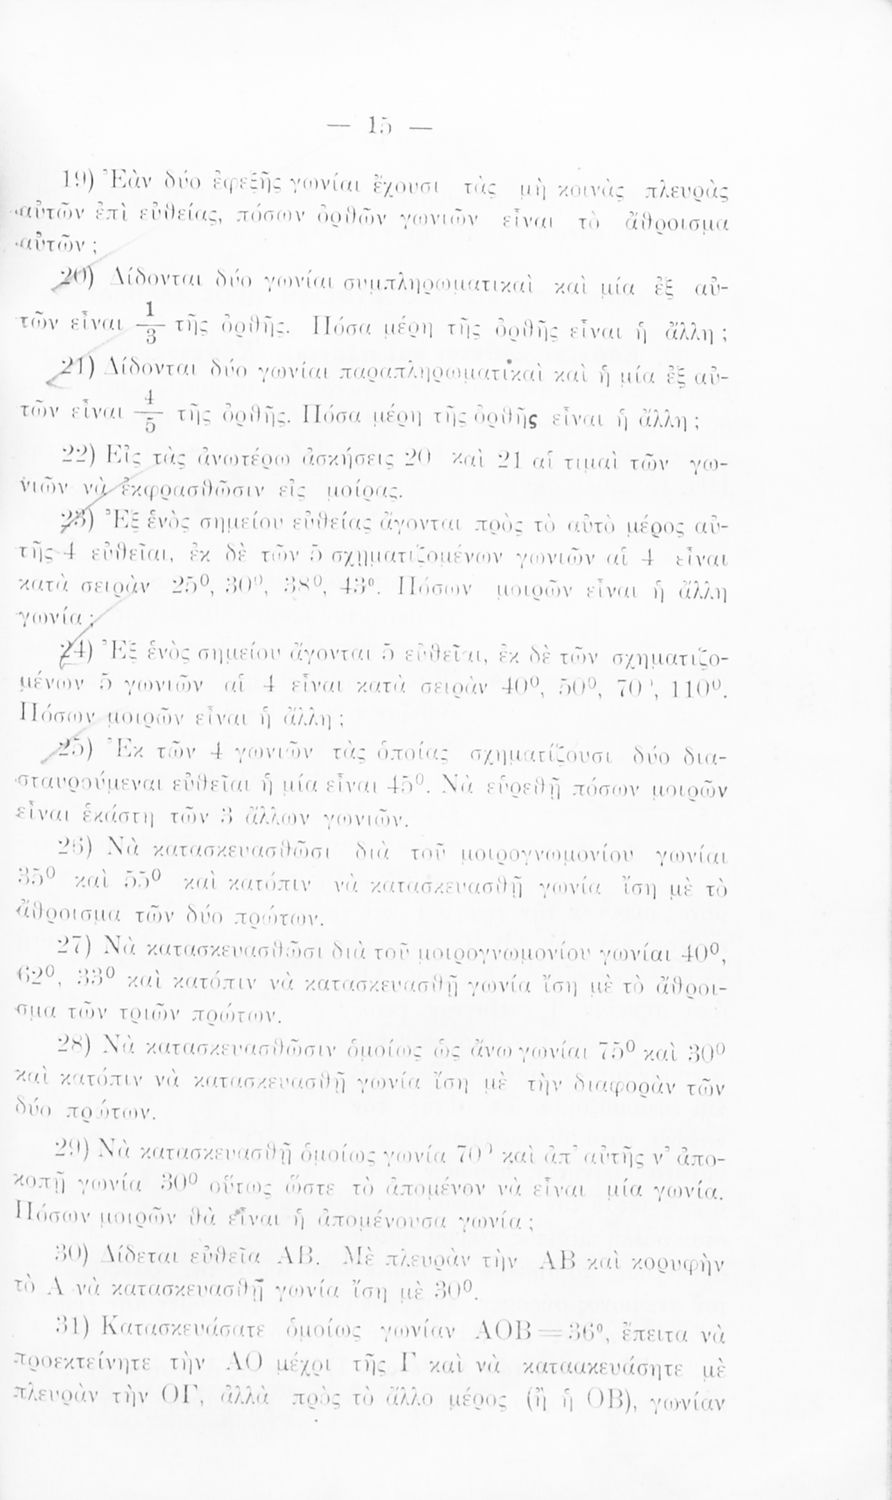 — 15 —
19) Ἐὰν δύο ἐφεξῆς γωνίαι ἔχουσι τὰς μὴ κοινὰς πλευρὰς
αὐτῶν ἐπὶ εὐθείας, πόσων ὀρθῶν γωνιῶν εἶναι τὸ ἄθροισμα
αὐτῶν ;
20) Δίδονται δύο γωνίαι συμπληρωματικαὶ καὶ μία ἐξ αὐ-
τῶν εἶναι 1/3 τῆς ὀρθῆς. Πόσα μέρη τῆς ὀρθῆς εἶναι ἡ ἄλλη ;
21) Δίδονται δύο γωνίαι παραπληρωματικαὶ καὶ ἡ μία ἐξ αὐ-
τῶν εἶναι 4/5 τῆς ὀρθῆς. Πόσα μέρη τῆς ὀρθῆς εἶναι ἡ ἄλλη ;
22) Εἰς τὰς ἀνωτέρω ἀσκήσεις 20 καὶ 21 αἱ τιμαὶ τῶν γω-
νιῶν νὰ ἐκφρασθῶσιν εἰς μοίρας.
23) Ἐξ ἑνὸς σημείου εὐθείας ἄγονται πρὸς τὸ αὐτὸ μέρος αὐ-
τῆς 4 εὐθεῖαι, ἐκ δὲ τῶν 5 σχηματιζομένων γωνιῶν αἱ 4 εἶναι
κατὰ σειρὰν 25⁰, 30⁰, 38⁰, 43⁰. Πόσων μοιρῶν εἶναι ἡ ἄλλη
γωνία ;
24) Ἐξ ἑνὸς σημείου ἄγονται 5 εὐθεῖαι, ἐκ δὲ τῶν σχηματιζο-
μένων 5 γωνιῶν αἱ 4 εἶναι κατὰ σειρὰν 40⁰, 50⁰, 70⁰, 110⁰.
Πόσων μοιρῶν εἶναι ἡ ἄλλη ;
25) Ἐκ τῶν 4 γωνιῶν τὰς ὁποίας σχηματίζουσι δύο δια-
σταυρούμεναι εὐθεῖαι ἡ μία εἶναι 45⁰. Νὰ εὑρεθῇ πόσων μοιρῶν
εἶναι ἑκάστη τῶν 3 ἄλλων γωνιῶν.
26) Νὰ κατασκευασθῶσι διὰ τοῦ μοιρογνωμονίου γωνίαι
35⁰ καὶ 55⁰ καὶ κατόπιν νὰ κατασκευασθῇ γωνία ἴση μὲ τὸ
ἄθροισμα τῶν δύο πρώτων.
27) Νὰ κατασκευασθῶσι διὰ τοῦ μοιρογνωμονίου γωνίαι 40⁰,
62⁰, 33⁰ καὶ κατόπιν νὰ κατασκευασθῇ γωνία ἴση μὲ τὸ ἄθροι-
σμα τῶν τριῶν πρώτων.
28) Νὰ κατασκευασθῶσιν ὁμοίως ὡς ἄνω γωνίαι 75⁰ καὶ 30⁰
καὶ κατόπιν νὰ κατασκευασθῇ γωνία ἴση μὲ τὴν διαφορὰν τῶν
δύο πρώτων.
29) Νὰ κατασκευασθῇ ὁμοίως γωνία 70⁰ καὶ ἀπ' αὐτῆς ν' ἀπο-
κοπῇ γωνία 30⁰ οὕτως ὥστε τὸ ἀπομένον νὰ εἶναι μία γωνία.
Πόσων μοιρῶν θὰ εἶναι ἡ ἀπομένουσα γωνία ;
30) Δίδεται εὐθεῖα ΑΒ. Μὲ πλευρὰν τὴν ΑΒ καὶ κορυφὴν
τὸ Α νὰ κατασκευασθῇ γωνία ἴση μὲ 30⁰.
31) Κατασκευάσατε ὁμοίως γωνίαν ΑΟΒ = 36⁰, ἔπειτα νὰ
προεκτείνητε τὴν ΑΟ μέχρι τῆς Γ καὶ νὰ καταακευάσητε μὲ
πλευρὰν τὴν ΟΓ, ἀλλὰ πρὸς τὸ ἄλλο μέρος (ἢ ἡ ΟΒ), γωνίαν